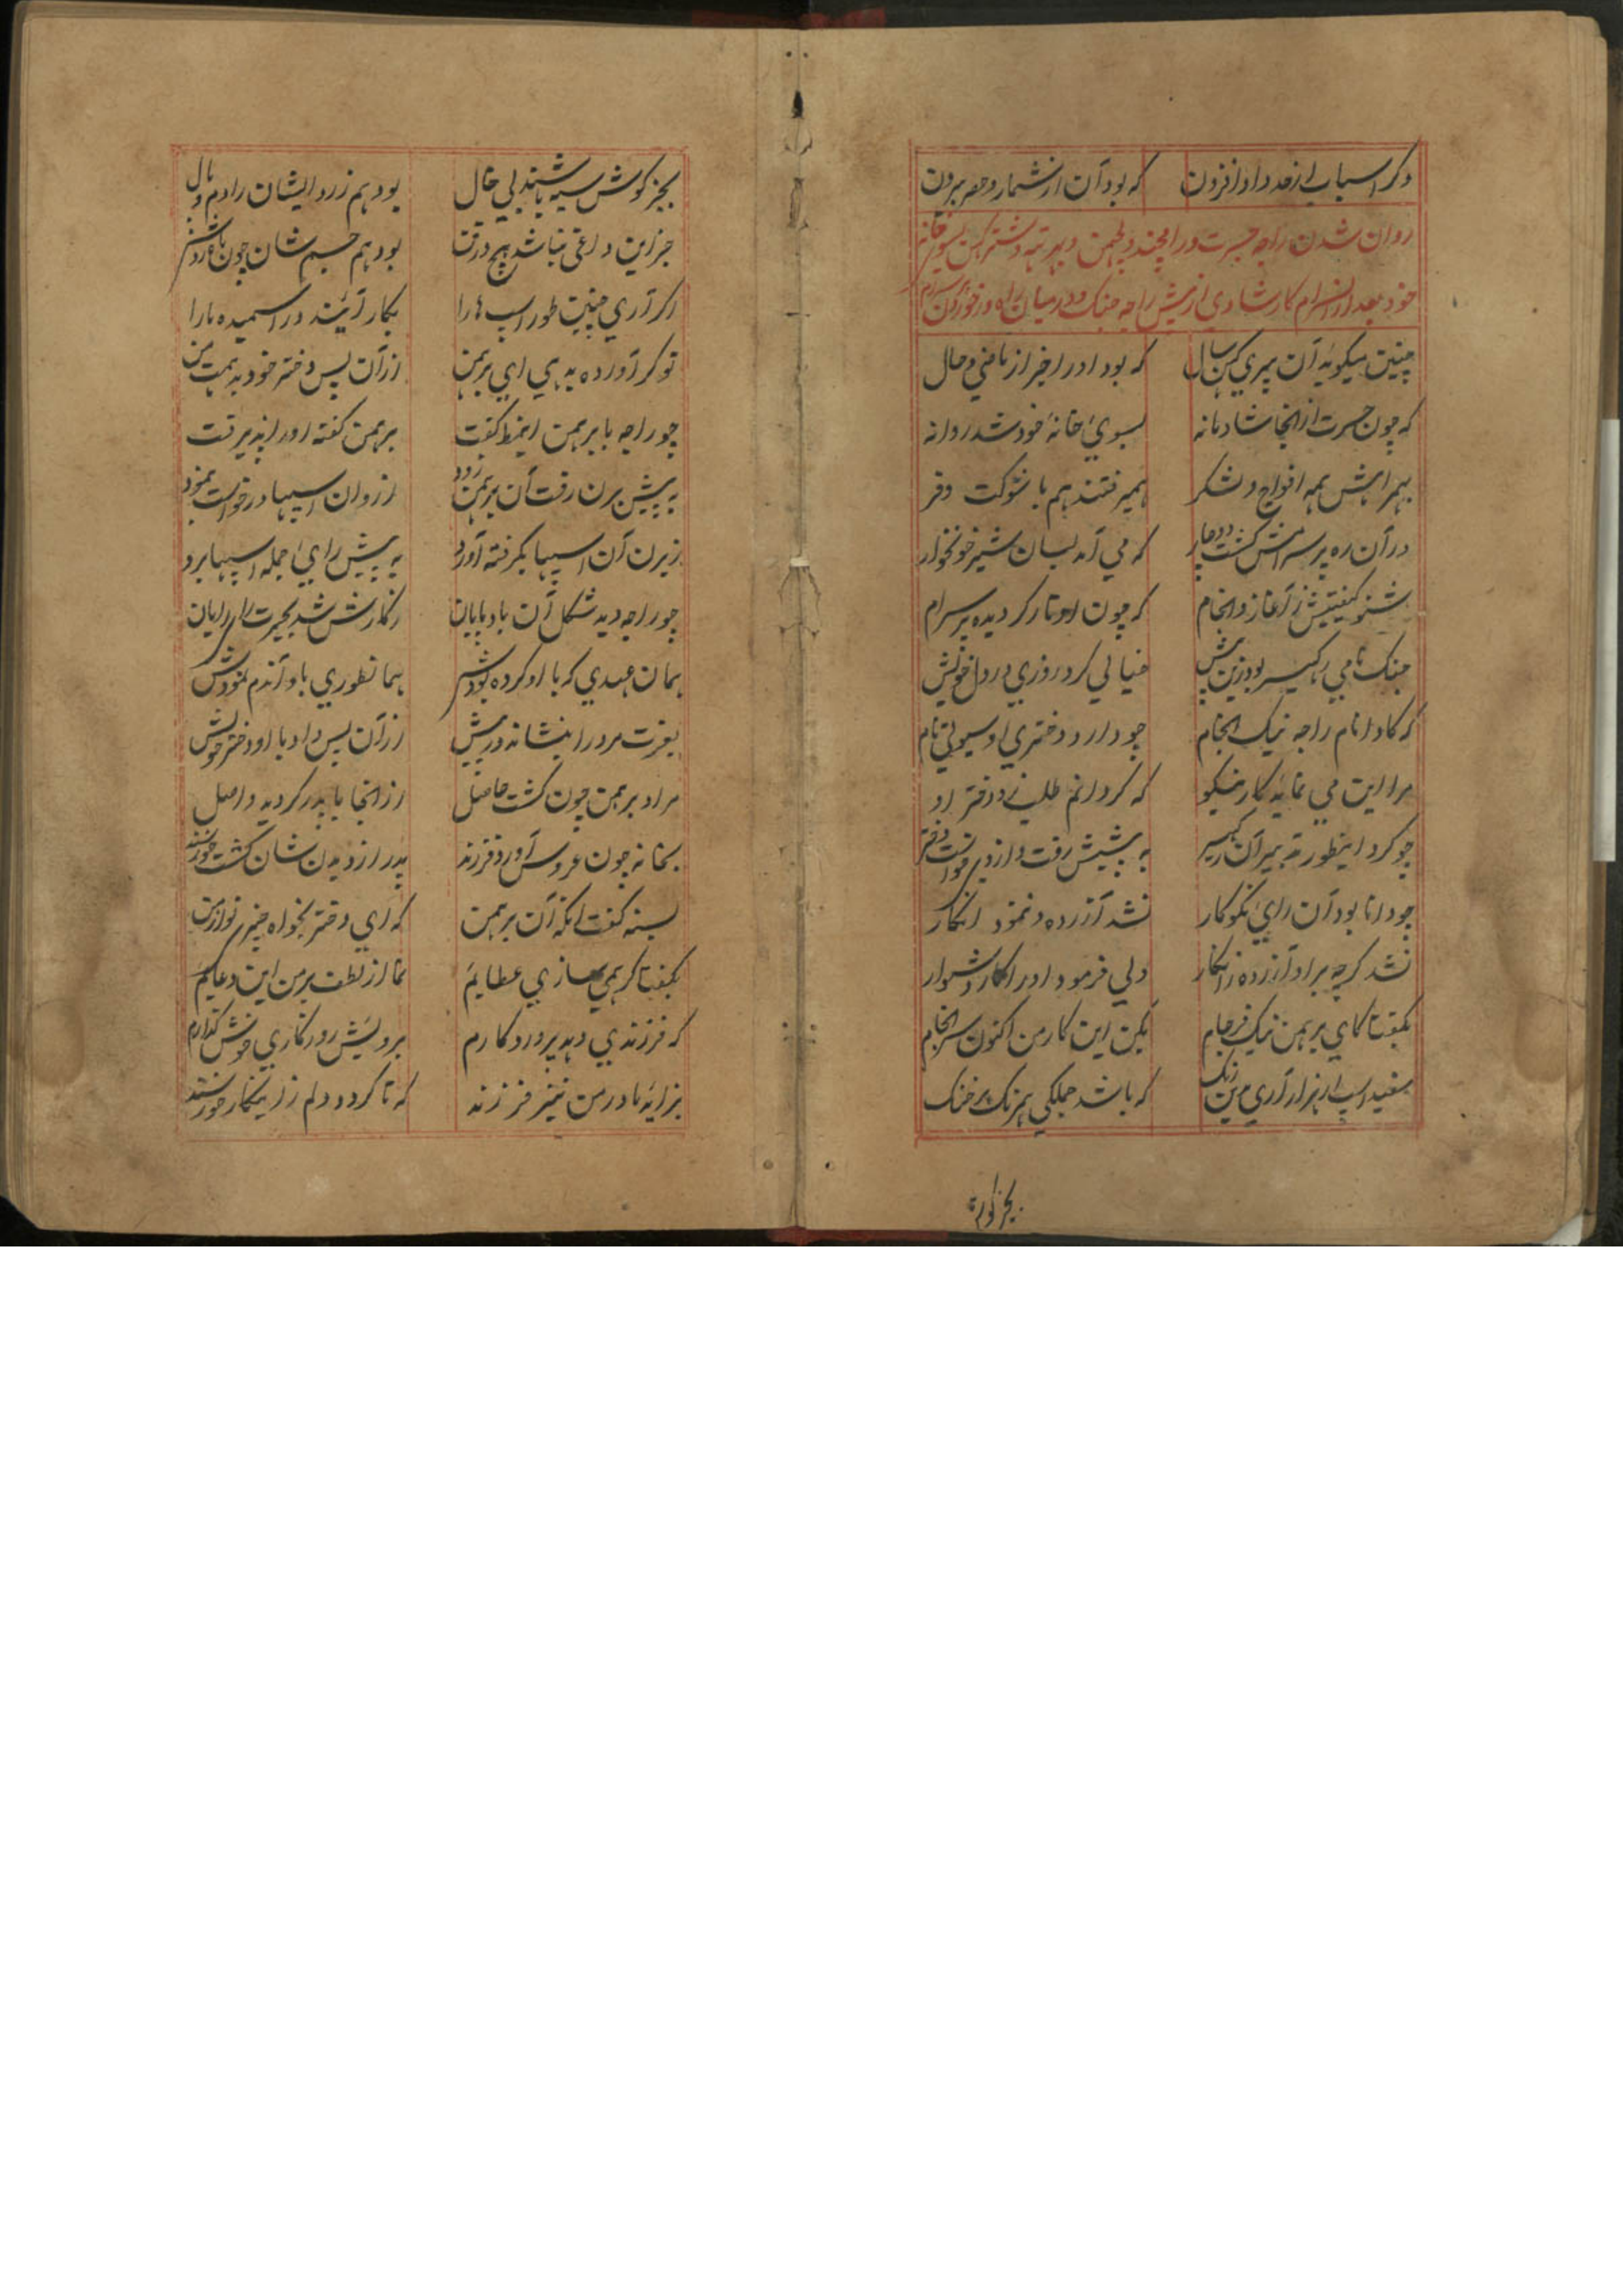 دگر اسباب از حد داد افزون که بود آن از شمار و حصر بیرون
روان شدن راجه جسرت و رامچند و لچمن و بهرته و شترکهن بسوی خانه
خود بعد از انصرام کار شادی از پیش راجه جنک و در میان راه در خوردن پرسرام
چنین میکوید آن پیری کهن سال که بود او را خبر از ماضی و حال
که چون جسرت از انجا شادمانه بسوی خانهٔ خود شد روانه
بهمراهش همه افواج و لشکر همیرفتند هم با شوکت و فر
در آن ره پرسرامش کشت دوچار که می آمد بسان شیر خونخوار
شنو کیفیتش ز آغاز و انجام که چون اوتار کردیده پرسرام
نامی رکهیسر بود زین پیش خیالی کرد روزی در دل خویش
که کادا نام راجه نیک انجام چو دارد دختری او نام
مرا این می نماید کار نیکو که کردانم طلب زو دختر او
چو کرد اینطور تدبیر آن رکهیسر به پیشش رفت و از وی خواست دختر
چو دانا بود آن رای نکوکار نشد آزرده و ننمود انکار
نشد کرچه بر او آزرده ز انکار ولی فرمود او را کار دشوار
بکفتا کای برهمن نیک فرجام بکن این کار من اکنون سرانجام
سفید اسپ ار هزار آری من رنک که باشد جملکی همرنک بر خنک
بجز کوش
بجز کوش سیه باشند بی خال بود هم زرد ایشان را دم و یال
جز این داغی نباشد هیچ در تن بود هم جسم شان چون ماه روشن
اکر آری چنین طور اسپ ها را بکار آیند در اسمیده ما را
تو کر آورده بدهی ای برهمن از آن پس دختر خود بدهمت من
چو راجه با برهمن اینمط کفت برهمن کفته او را پذیرفت
به پیش برن رفت آن برهمن زود ازو آن اسپها درخواست بنمود
ز برن آن اسپها بکرفته آورد به پیش رای جمله اسپها برد
چو راجه دید شکل آن بادپایان ز کارش شد بحیرت رای رایان
همان عهدی که با او کرده بودش همانطوری باو آندم نمودش
بعزت مرو را بنشانه در پیش از آن پس داد با او دختر خویش
مراد برهمن چون کشت حاصل از انجا با پدر کردید واصل
بخانه چون عروس آورد فرزند پدر از دیدن شان کشت خورسند
بسنه کفت انکه آن برهمن که ای دختر بخواه چیزی تو از من
بکفتا کر همی سازی عطایم نما از لطف بر من این دعایم
که فرزندی دهد پروردکارم برویش روزکاری خوش کذارم
بزاید مادر من نیز فرزند که تا کردد دلم زاینکار خورسند